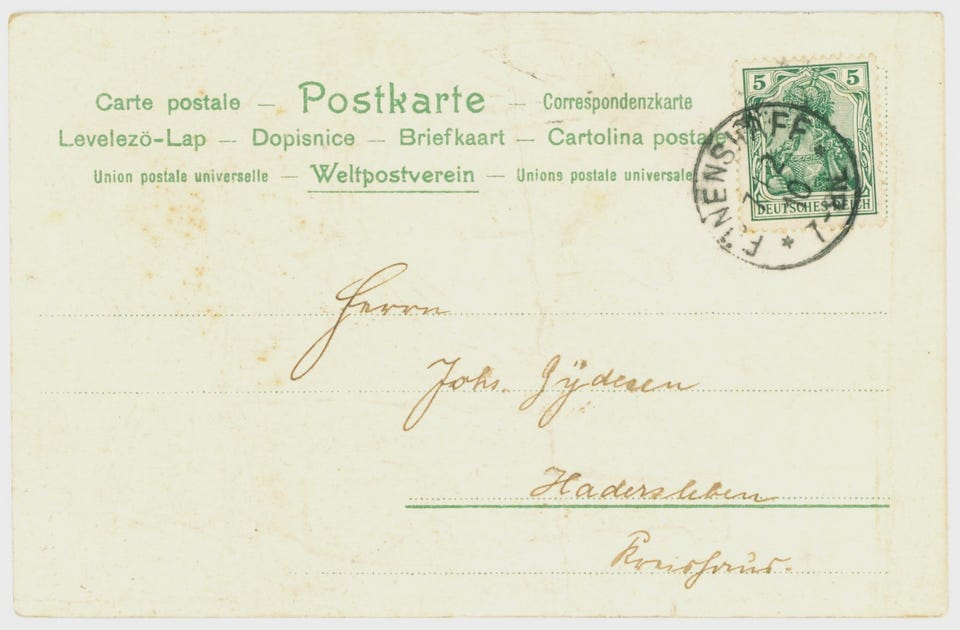 Carte postale — Postkarte — Correspondenzkarte
Levelezö-Lap — Dopisnice — Briefkaart — Cartolina postale
Union postale universelle — Weltpostverein — Unions postale universale
5 5
DEUTSCHES REICH
7-8N
Herrn
Johs. Gÿdesen
Hadersleben
Kreishaus.